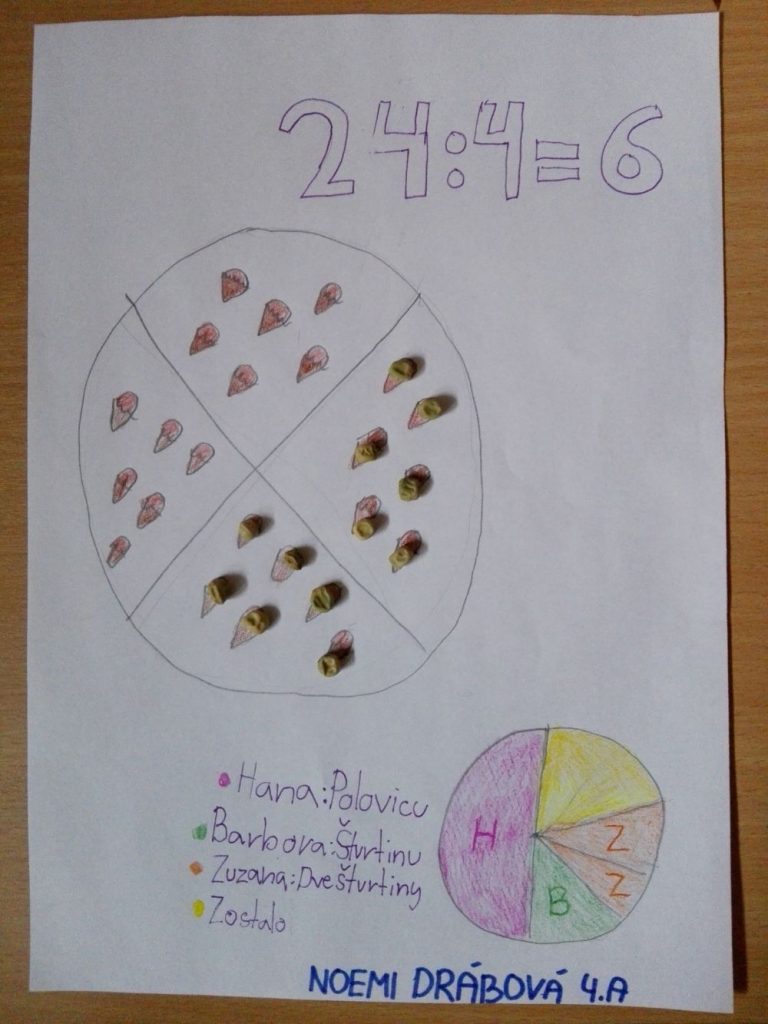 24:4=6
H
Z
Z
B
Hana:Polovicu
Barbora:Štvrtinu
Zuzana:Dve štvrtiny
Zostalo
NOEMI DRÁBOVÁ 4.A